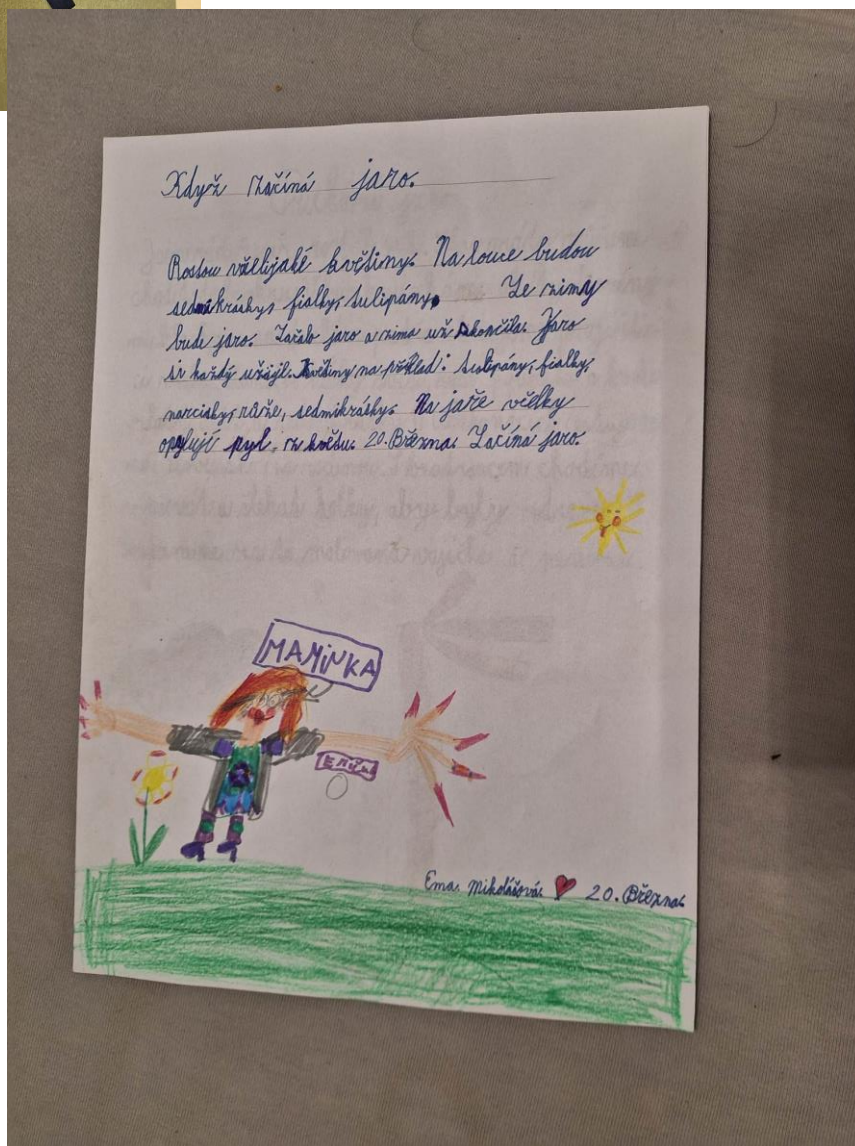 Když začíná jaro.
Rostou všelijaké květiny. Na louce budou
sedmikrásky, fialky, tulipány. Ze zimy
bude jaro. Začalo jaro a zima už skončila. Jaro
si každý užijl. Květiny na příklad: tulipány, fialky,
narcisky, růže, sedmikrásky. Na jaře včelky
opylují pyl z květu. 20. Března. Začíná jaro.
MAMINKA
Ema Mikolášová. 20. Března.